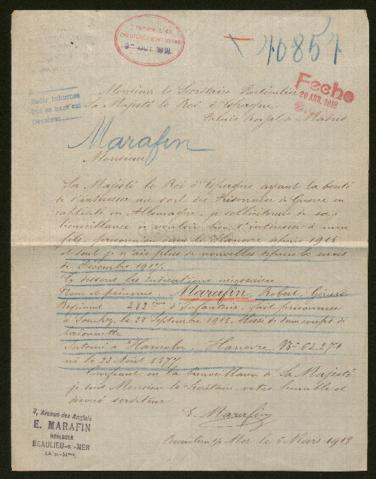 10851
Fecho
Monsieur le Secrétaire Particulier
Sa Majesté le Roi d'Espagne
Palais Royal à Madrid
Marafin
Monsieur
Sa Majesté le Roi d'Espagne ayant la bonté
de s'intéresser au sort des Prisonniers de Guerre en
captivité en Allemagne, je
bienveillance à vouloir bien s'intéresser à mon
fils prisonnier dans le Hanovre depuis 1915
et dont je n'ai plus de nouvelles depuis le mois
de Décembre 1917.
Ci dessous les indications nécessaires
Nom et prénoms : Marafin Robert
Régiment d'Infanterie, fait prisonnier
à Souchez, le 28 Septembre 1915,
baïonnette
Interné à Hameln Hanovre N° 6227
né le 22 Août 1877
Confiant en la bienveillance de Sa Majesté
je suis Monsieur le Secrétaire votre humble et
dévoué serviteur
E. Marafin
Beaulieu s/ Mer le 6 Mars 1918
2, Avenue des Anglais
E. MARAFIN
HORLOGER
BEAULIEU-s-MER